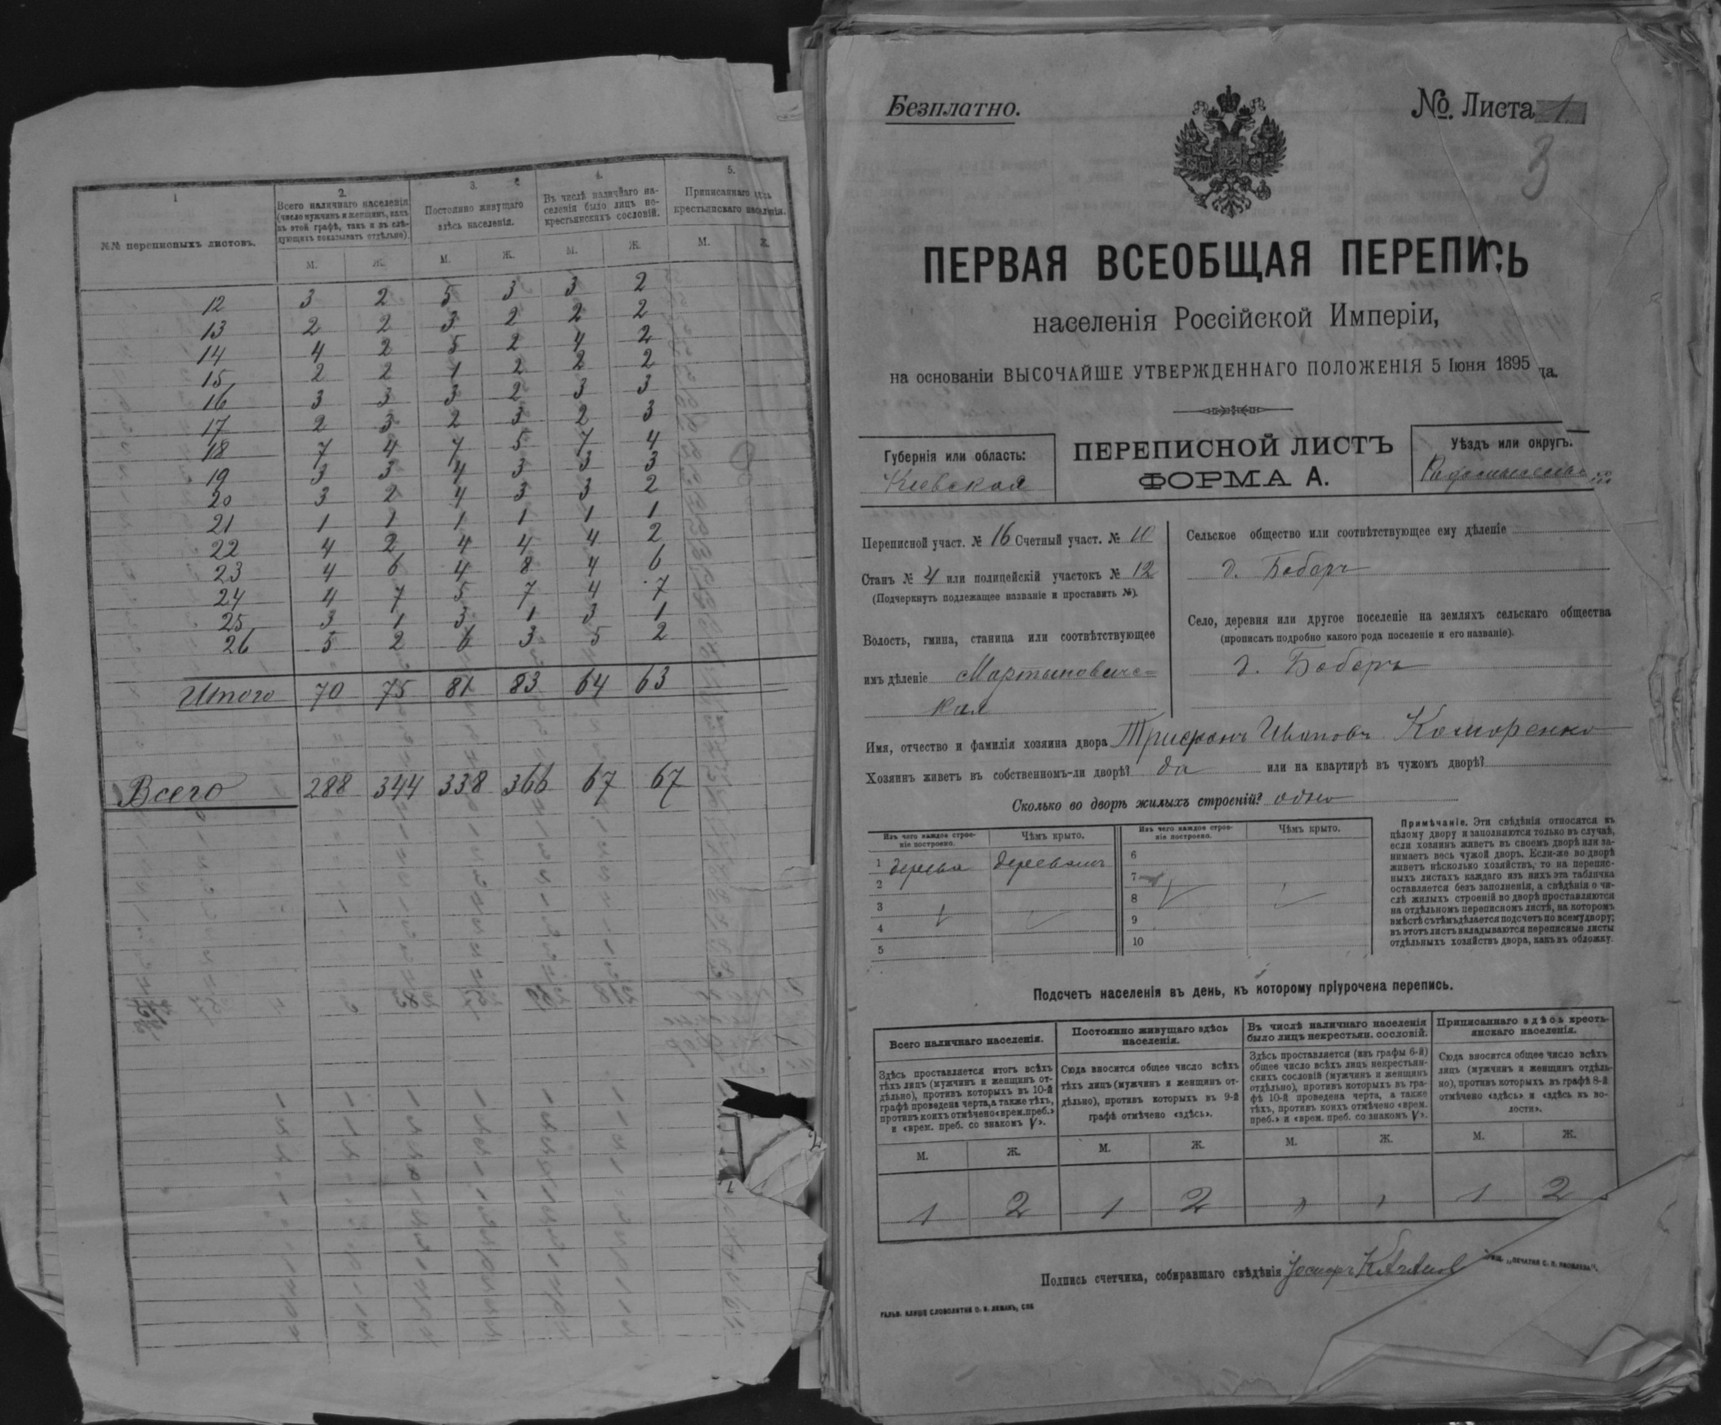 1
2.
3.
4.
5.
№№ переписныхъ листовъ.
Всего наличнаго населенія
(число мужчинъ и женщинъ, какъ
въ этой графѣ, такъ и въ слѣ-
дующихъ показывать отдѣльно).
Постоянно живущаго
здѣсь населенія.
Въ числѣ наличнаго на-
селенія было лицъ не-
крестьянскихъ сословій.
Приписаннаго здѣсь
крестьянскаго населенія.
М. Ж. М. Ж. М. Ж. М. Ж.
12 3 2 5 3 3 2
13 2 2 3 2 2 2
14 4 2 5 2 4 2
15 2 2 1 2 2 2
16 3 3 3 2 3 3
17 2 3 2 3 2 3
18 7 4 7 5 7 4
19 3 3 4 3 3 3
20 3 2 4 3 3 2
21 1 1 1 1 1 1
22 4 2 4 4 4 2
23 4 6 4 8 4 6
24 4 7 5 7 4 7
25 3 1 3 1 3 1
26 5 2 6 3 5 2
Итого 70 75 81 83 64 63
Всего 288 344 338 366 67 67
Безплатно.
№. Листа 1
3
ПЕРВАЯ ВСЕОБЩАЯ ПЕРЕПИСЬ
населенія Россійской Имперіи,
на основаніи ВЫСОЧАЙШЕ УТВЕРЖДЕННАГО ПОЛОЖЕНІЯ 5 Іюня 1895 да.
Губернія или область:
Кіевская
ПЕРЕПИСНОЙ ЛИСТЪ
ФОРМА А.
Уѣздъ или округъ:
Переписной участ. № 16 Счетный участ. № 10
Станъ № 4 или полицейскій участокъ № 12
(Подчеркнуть подлежащее названіе и проставить №).
Волость, гмина, станица или соотвѣтствующее
имъ дѣленіе Мартыновичс-
кая
Сельское общество или соотвѣтствующее ему дѣленіе
д. Боберъ
Село, деревня или другое поселеніе на земляхъ сельскаго общества
(прописать подробно какого рода поселеніе и его названіе).
д. Боберъ
Имя, отчество и фамилія хозяина двора Трифонъ Ивановъ Коморенко
Хозяинъ живетъ въ собственномъ-ли дворѣ? да или на квартирѣ въ чужомъ дворѣ?
Сколько во дворѣ жилыхъ строеній? одно
Изъ чего каждое строе-
ніе построено.
Чѣмъ крыто.
Изъ чего каждое строе-
ніе построено.
Чѣмъ крыто.
1 дерева деревомъ 6
2 7
3 8
4 9
5 10
Примѣчаніе. Эти свѣдѣнія относятся къ
цѣлому двору и заполняются только въ случаѣ,
если хозяинъ живетъ въ своемъ дворѣ или за-
нимаетъ весь чужой дворъ. Если-же во дворѣ
живетъ нѣсколько хозяйствъ, то на перепис-
ныхъ листахъ каждаго изъ нихъ эта табличка
оставляется безъ заполненія, а свѣдѣнія о чи-
слѣ жилыхъ строеній во дворѣ проставляются
на отдѣльномъ переписномъ листѣ, на которомъ
вмѣстѣ съ тѣмъ дѣлается подсчетъ по всему двору;
въ этотъ листъ вкладываются переписные листы
отдѣльныхъ хозяйствъ двора, какъ въ обложку.
Подсчетъ населенія въ день, къ которому пріурочена перепись.
Всего наличнаго населенія.
Постоянно живущаго здѣсь
населенія.
Въ числѣ наличнаго населенія
было лицъ некрестьян. сословій.
Приписаннаго здѣсь кресть-
янскаго населенія.
Здѣсь проставляется итогъ всѣхъ
тѣхъ лицъ (мужчинъ и женщинъ от-
дѣльно), противъ которыхъ въ 10-й
графѣ проведена черта, а также тѣхъ,
противъ коихъ отмѣчено «врем. преб.»
и «врем. преб. со знакомъ V».
Сюда вносится общее число всѣхъ
тѣхъ лицъ (мужчинъ и женщинъ от-
дѣльно), противъ которыхъ въ 9-й
графѣ отмѣчено «здѣсь».
Здѣсь проставляется (изъ графы 6-й)
общее число всѣхъ лицъ некрестьян-
скихъ сословій (мужчинъ и женщинъ
отдѣльно), противъ которыхъ въ гра-
фѣ 10-й проведена черта, а также
тѣхъ, противъ коихъ отмѣчено «врем.
преб.» и «врем. преб. со знакомъ V».
Сюда вносится общее число всѣхъ
лицъ (мужчинъ и женщинъ отдѣль-
но), противъ которыхъ въ графѣ 8-й
отмѣчено «здѣсь» и «здѣсь въ во-
лости».
М. Ж. М. Ж. М. Ж. М. Ж.
1 2 1 2 1 2
Подпись счетчика, собиравшаго свѣдѣнія